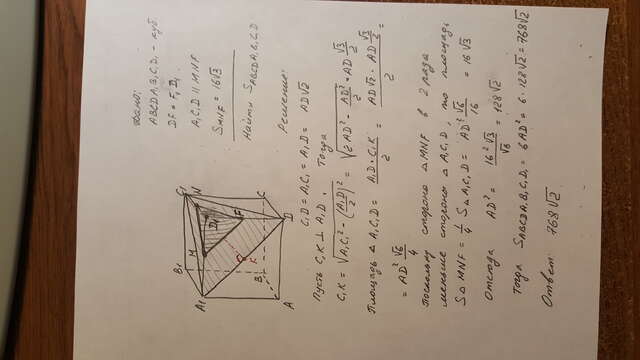 Дано:
ABCDA₁B₁C₁D₁ - куб
DF = F₁D₁
A₁C₁D ∥ MNF
S MNF = 16√3
Найти S ABCDA₁B₁C₁D₁
Решение:
C₁D = A₁C₁ = A₁D = AD√2
Пусть C₁K ⊥ A₁D Тогда
C₁K = √(A₁C₁² - (A₁D/2)²) = √(2AD² - AD²/2) = AD √3/2
Площадь △ A₁C₁D = A₁D · C₁K / 2 = AD√2 · AD √3/2 / 2 =
= AD² √6/4
Поскольку стороны △MNF в 2 раза
меньше стороны △ A₁C₁D, то площадь
S△MNF = 1/4 S△A₁C₁D = AD² √6/16 = 16√3
Отсюда AD² = 16²√3/√6 = 128√2
Тогда S ABCDA₁B₁C₁D₁ = 6AD² = 6 · 128√2 = 768√2
Ответ: 768√2
C₁
N
D₁
M
F
B₁
A₁
K
C
B
D
A